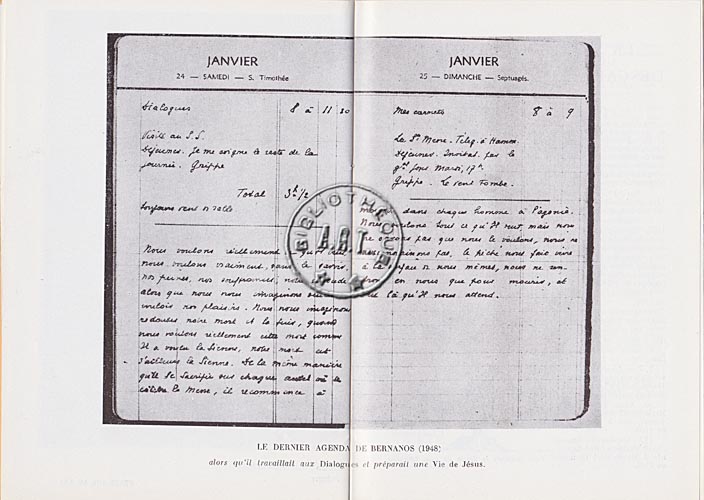 JANVIER
24 — SAMEDI — S. Timothée
Dialogues 8 à 11 30
Visite au S.S.
Déjeuner. Je me soigne le reste de la
journée. Grippe
Total 3h 1/2
toujours vent
Nous voulons réellement ce qu'Il veut
nous voulons vraiment, sans le savoir,
nos peines, nos souffrances, notre
alors que nous nous imaginons
vouloir nos plaisirs. Nous nous imaginons
redouter notre mort et la fuir, quand
nous voulons réellement cette mort comme
Il a voulu la Sienne, notre mort est
d'ailleurs la Sienne. De la même manière
qu'Il Se sacrifie sur chaque autel où se
célèbre la Messe, il recommence à
JANVIER
25 — DIMANCHE — Septuagés.
Mes carnets 8 à 9
La Ste Messe. Téleg. à Hamm.
Déjeuner. Invitat. par le
Mardi, 17h.
Grippe. Le vent tombe.
dans chaque homme à l'agonie.
Nous voulons tout ce qu'Il veut, mais nous
ne pas que nous le voulons, nous ne
nous connaissons pas, le péché nous fait vivre
à la surface de nous-mêmes, nous ne ren-
trons en nous que pour mourir, et
c'est là qu'Il nous attend.
BIBLIOTHÈQUE
A.R.T.
LE DERNIER AGENDA DE BERNANOS (1948)
alors qu'il travaillait aux Dialogues et préparait une Vie de Jésus.